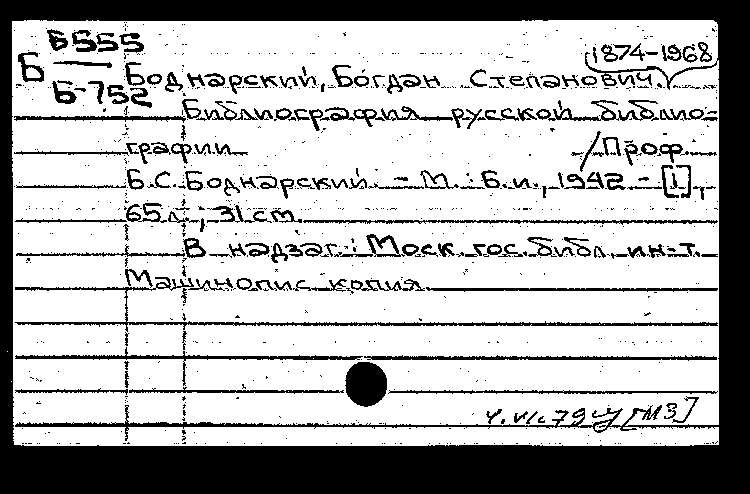 Б В555
Б-752
1874-1968
Боднарский, Богдан Степанович.
Библиография русской библио-
графии / Проф.
Б.С. Боднарский. - М. : Б.и., 1942. - [1],
65 л. ; 31 см.
В надзаг.: Моск. гос. библ. ин-т.
Машинопис. копия.
4.VI.79 [МЗ]